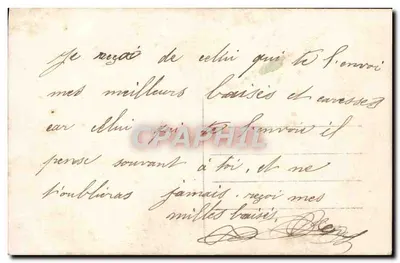 Je reçoi de celui qui te l'envoi
mes meilleurs baisés et caresses
car celui qui te l'envoie il
pense souvant à toi, et ne
t'oublieras jamais. reçoi mes
milles baisés.
CPAPHIL